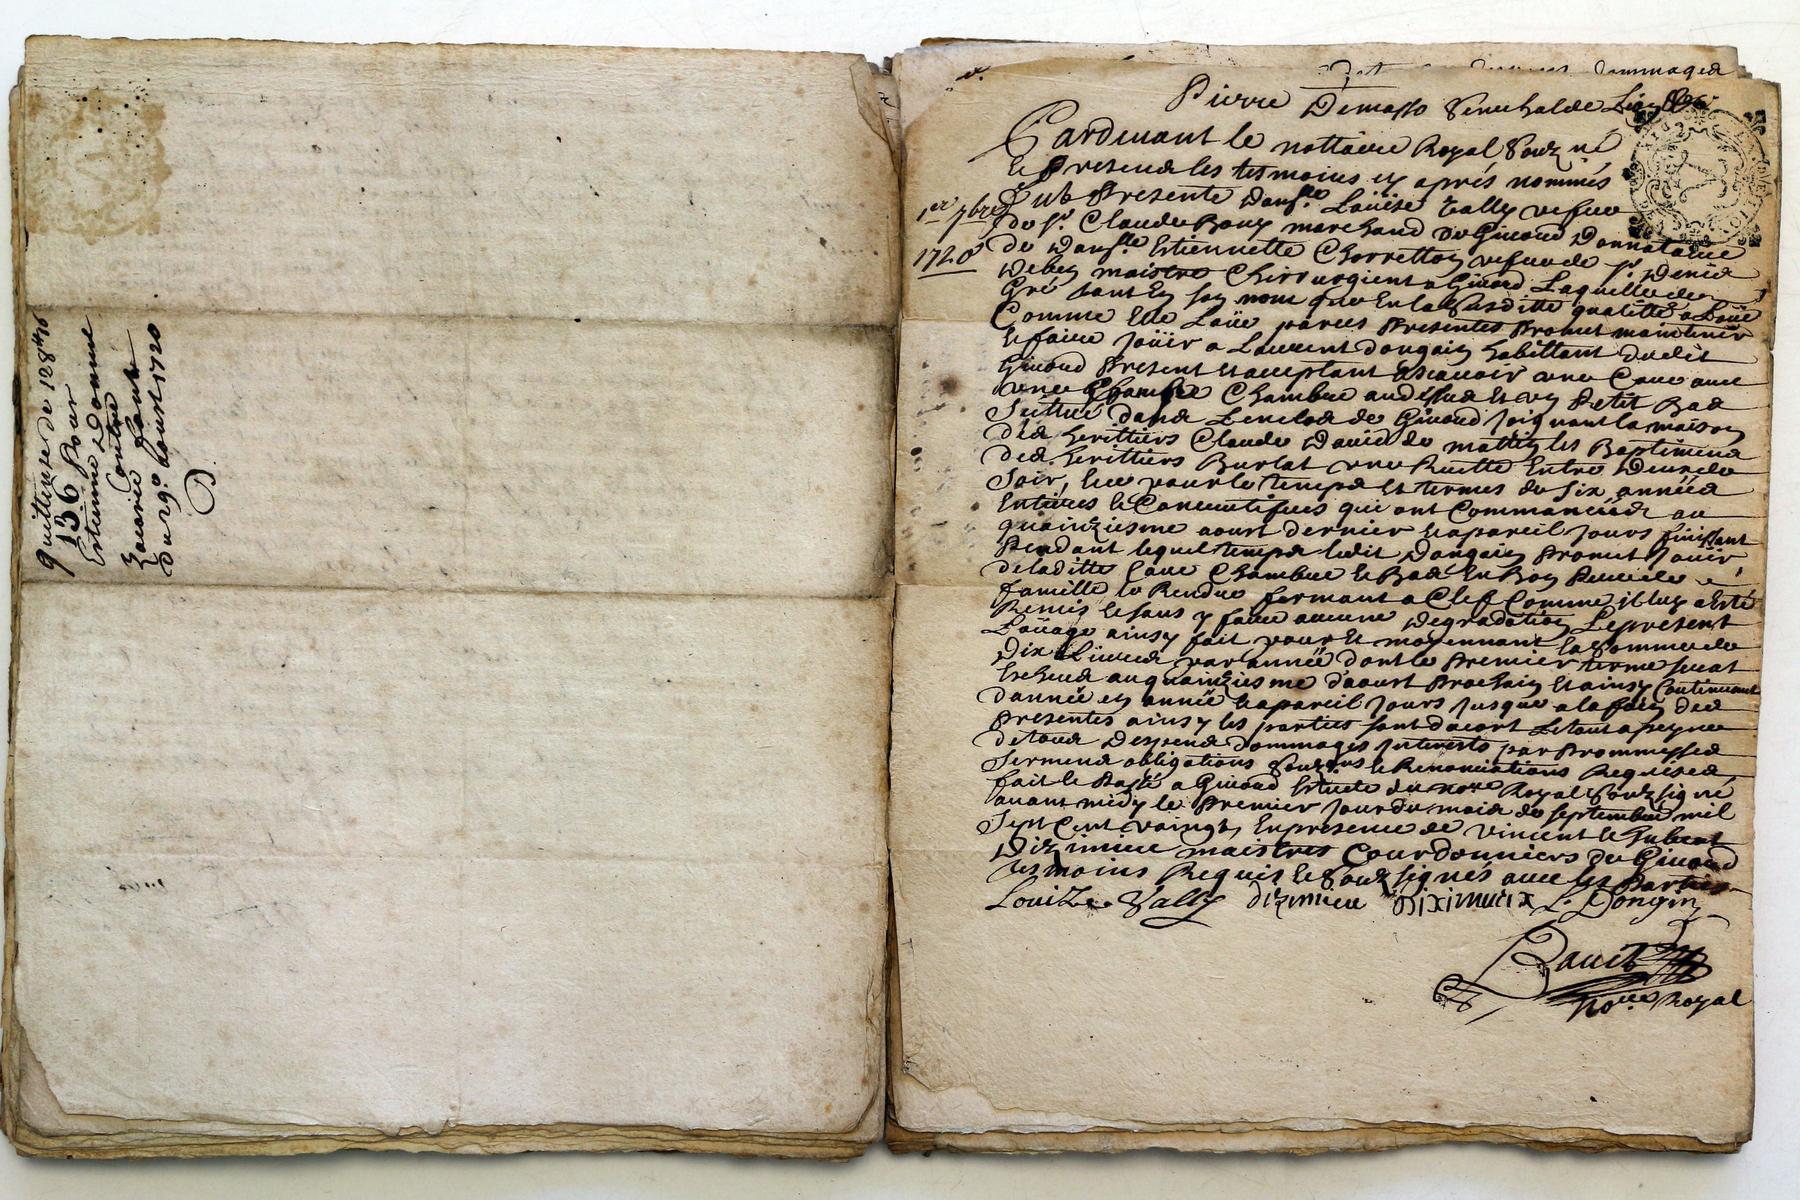 Quittense de 128lt 16
136 pour
Estienne Donnet
Contre
Zacarie
du 29e aoust 1720
dommages
Pierre Demasso Senechal de Lion
Pardevant le nottaire Royal Souzne
Et Presens les tesmoins cy aprés nommés
1er 7bre
fut Presente damslle Loüise Vally vefve
du sr. Claude Boux marchand de Givord Donnataire
1720
de damslle Estiennette Chorretton vefve de sr. Denis
Deben maistre Chirurgient a Givord Laquelle de
Gré tant En son nom que En la Susditte qualitté a Loüe
Comme Elle Loüe par ces Presentes Promet maintenir
Et faire joüir a Laurent dongain habittant dudit
Givord Present et acceptant Ascavoir une Cave avec
une Chambre au dessus Et un Petit Bas
Scittué dans Lenclos de Givord Joignant la maison
des herittiers Claude David de mattin les Baptimens
des herittiers Burlat une Ruette Entre deux de
Soir, Et ce pour le temps et termes de Six années
Entieres Et Consecutifves qui ont Commancées au
quainziesme aoust dernier Et a pareil jours finissant
Pendant lequel temps ledit dongain Promet Jouir
de laditte Cave Chambre Et Bas En Bon Pere de
famille Le Rendre fermant a Clef Comme il luy a Esté
Remis Et sans y faire aucune Degradation Le present
Loüage ainsy fait pour Et moyennant la Somme de
Dix Livres par année dont le Premier terme serat
Escheus au quainziesme daoust Prochain Et ainsy Continuant
dannée en année Et a pareil Jours Jusque a la fain des
Presentes ainsy les parties sont dacort Et tout a peyne
de tous Despens dommages Interests par Prommesses
Sermens obligations Et Renonciations Requises
fait Et Passé a Givord Estude du nore Royal Souzsigné
avant midy le Premier Jour du mois de septembre mil
Sept Cent vaingt En presence de vincent Et hubert
Dizimieu maistres Courdonniers de Givord
tesmoins Requis Et Souzsignés avec les Parties
Louize Vally dizimieu Diximieux L Dongin
David
Nore Royal